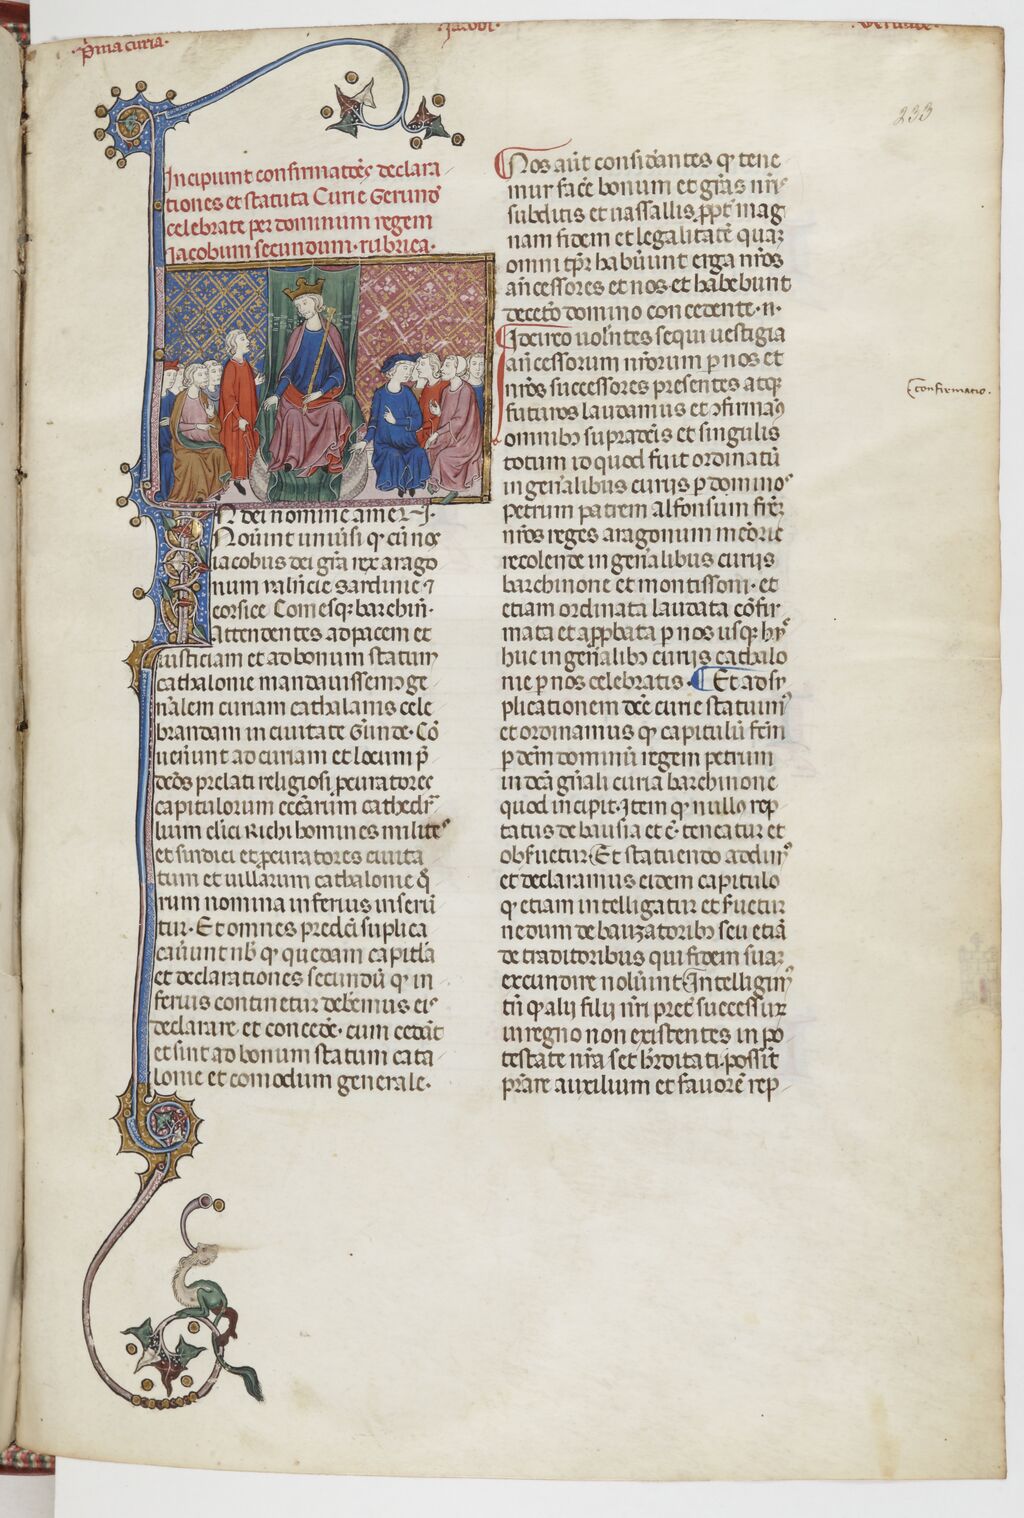 ·Prima curia·
Jacobi·
233
Incipiunt confirmatões declara
tiones et statuta Curie Gerund
celebrate per dominum regem
Jacobum secundum · rubrica·
N dei nomine amen
Nouint uniusi qꝫ cũ nos
iacobus dei grã rex arago
num ualncie sardinie ⁊
corsice Comesqꝫ barchiñ·
attendentes ad pacem et
iusticiam et ad bonum statum
cathalonie mandauissemꝰ ge
nãlem curiam cathalanis cele
brandam in ciuitate Gũnde· Cõ
uenunt ad curiam et locum p̃
dcõs prelati religiosi ꝓcuratores
capitulorum eccãrum cathedr̃
lium clici Richi homines milites
et sindici et ꝓcuratores ciuita
tum et uillarum cathalonie q̃
rum nomina inferius inserũ
tur· Et omnes predcĩ suplica
cauũnt nb̃ qꝫ quedam capitl̃a
et declarationes secundũ qꝫ in
ferius continetur debemus eis
declarare et concede· cum cedãt
et sint ad bonum statum cata
lonie et comodum generale·
Nos aũt considantes qꝫ tene
mur face bonum et grãs nr̃is
subditis et uassallis ꝓpt̃ mag
nam fidem et legalitatẽ quaꝫ
omni tpr̃ habũunt erga nr̃os
ancessores et nos et habebunt
decet̃o domino concedente· n·
Idcirco uolntes sequi uestigia
ancessorum nr̃orum p nos et
nr̃os successores presentes atqꝫ
futuros laudamus et ꝯfirmaꝰ
omnibꝫ supradcĩs et singulis
totum id quod fuit ordinatũ
in genãlibus curiis p dominos
petrum patrem alfonsum fr̃em
nr̃os reges aragonum meõrie
recolende in genãlibus curiis
barchinone et montissoni· et
etiam ordinata laudata cõfir
mata et app̱bata p nos usqꝫ
huc in genãlibꝫ curiis cathalo
nie p nos celebratis· Et ad su
plicationem dcẽ curie statuimꝰ
et ordinamus qꝫ capitulũ fcm̃
p dcm̃ dominũ regem petrum
in dcã gnãli curia barchinone
quod incipit· Item qꝫ nullꝰ rep
tatus de bausia et c̃· teneatur et
obsuetur· Et statuendo addimꝰ
et declaramus eidem capitulo
qꝫ etiam intelligatur et suetur
nedum de bauzatoribꝫ seu etiã
de traditoribus qui fidem suaꝫ
excundire nolũint· Intelligimꝰ
tñ qꝫ alii filii nr̃i pret̃ successorẽ
in regno non existentes in po
testate nr̃a set hr̃editati· possĩt
prãre auxilium et fauorẽ rep
confirmacio·